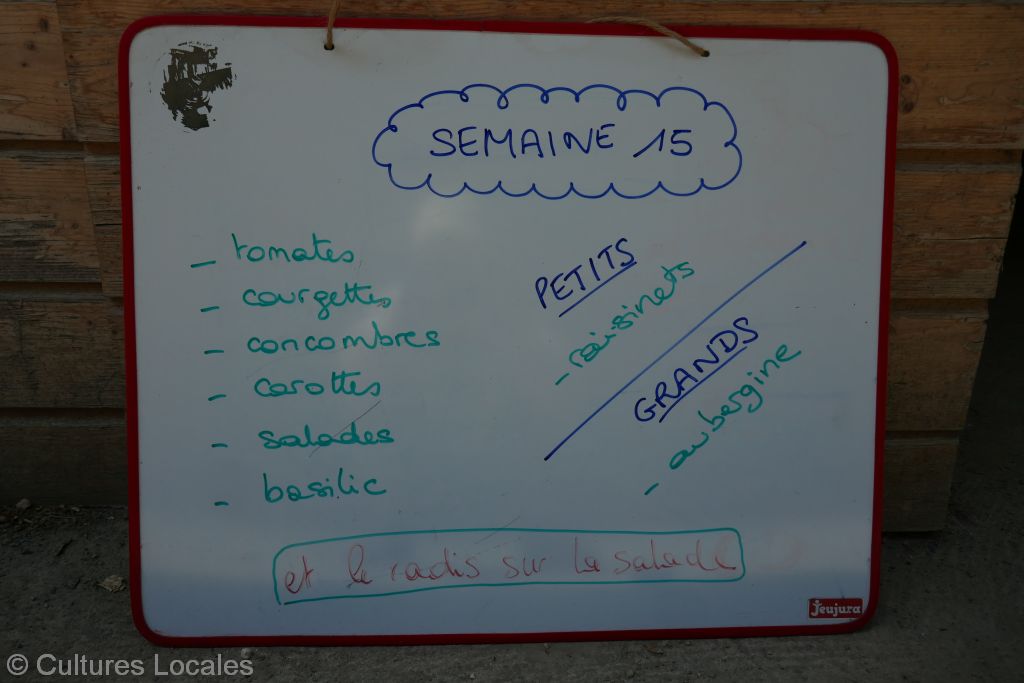 SEMAINE 15
- tomates
- courgettes
- concombres
- carottes
- salades
- basilic
PETITS
- raisinets
GRANDS
- aubergine
et le radis sur la salade
Jeujura
© Cultures Locales